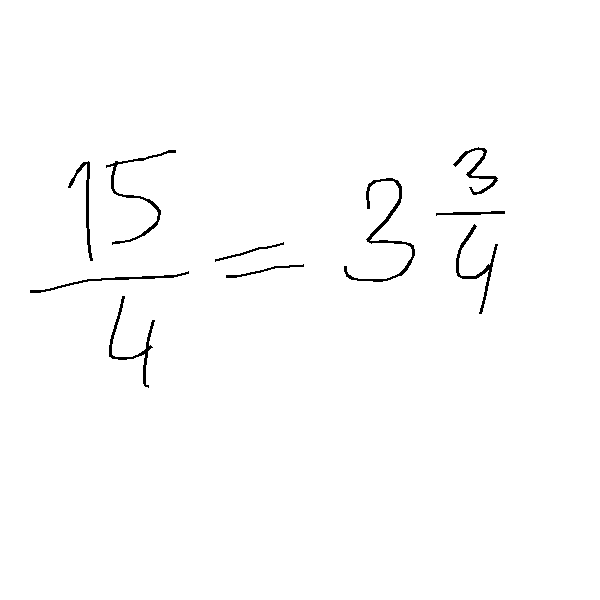 15/4 = 3 3/4